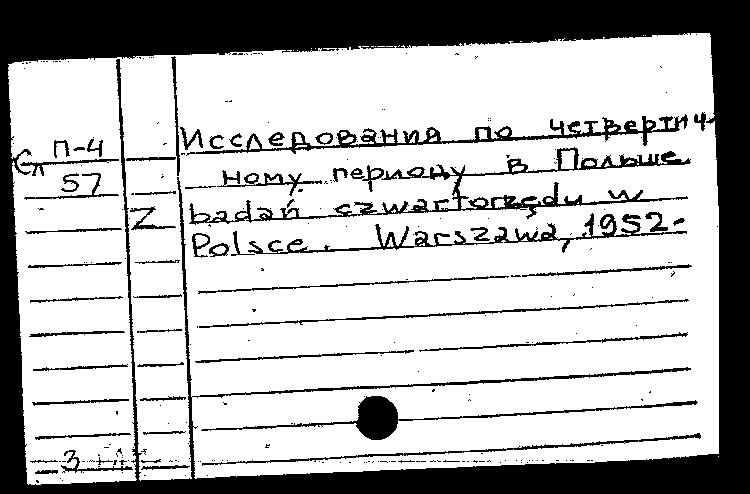 Сл П-4
57
Исследования по четвертич-
ному периоду в Польше
Z badań czwartorzędu w
Polsce. Warszawa, 1952-
3